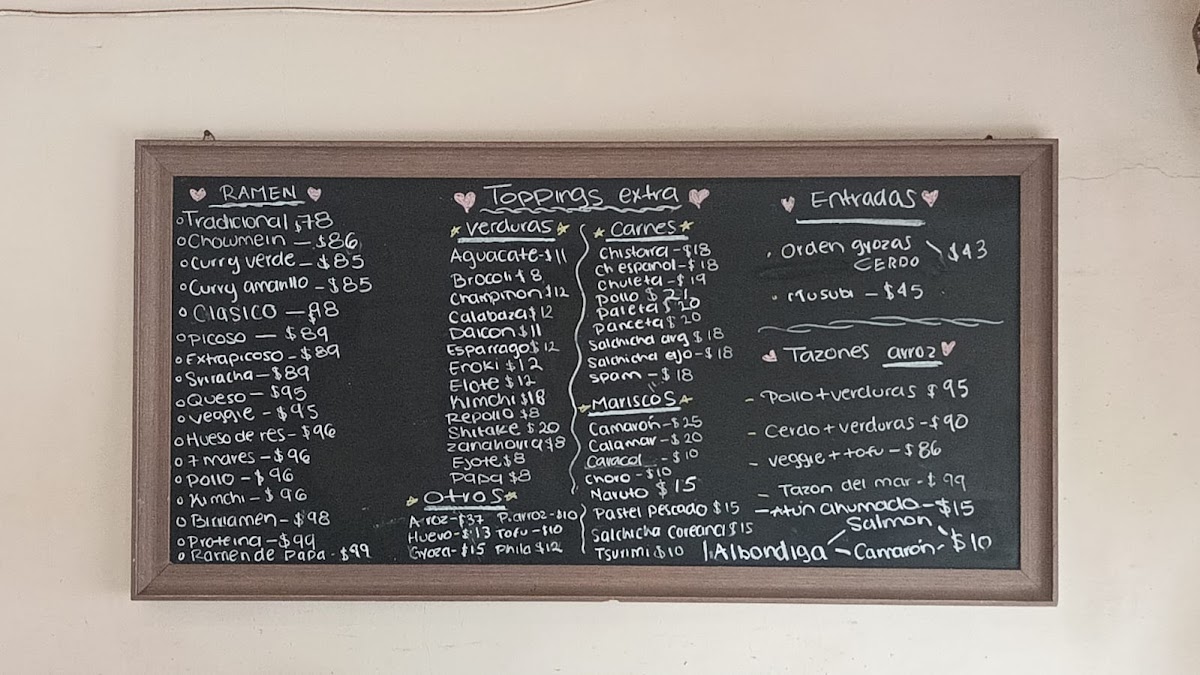 RAMEN
Tradicional $78
Chowmein - $86
Curry verde - $85
Curry amarillo - $85
Clasico - $98
Picoso - $89
Extrapicoso - $89
Sriracha - $89
Queso - $95
Veggie - $95
Hueso de res - $96
7 mares - $96
Pollo - $96
Kimchi - $96
Birriamen - $98
Proteina - $99
Ramen de Papa - $99
Toppings extra
Verduras
Aguacate - $11
Brocoli $8
Champiñon $12
Calabaza $12
Daicon $11
Esparrago $12
Enoki $12
Elote $12
Kimchi $18
Repollo $8
Shitake $20
Zanahoria $8
Ejote $8
Papa $8
Otros
Arroz - $37 P. arroz - $10
Huevo - $13 Tofu - $10
Gyoza - $15 Phila $12
Carnes
Chistorra - $18
Ch español - $18
Chuleta - $19
Pollo $21
Paleta $20
Panceta $20
Salchicha arg $18
Salchicha ejo - $18
Spam - $18
Mariscos
Camarón - $25
Calamar - $20
Caracol - $10
Choro - $10
Naruto $15
Pastel pescado $15
Salchicha coreana $15
Tsurimi $10
Entradas
Orden gyozas
CERDO $43
Musubi - $45
Tazones arroz
- Pollo + verduras $95
- Cerdo + verduras - $90
- Veggie + tofu - $86
- Tazon del mar - $99
- Atún ahumado - $15
Salmon
Albondiga - Camarón - $10